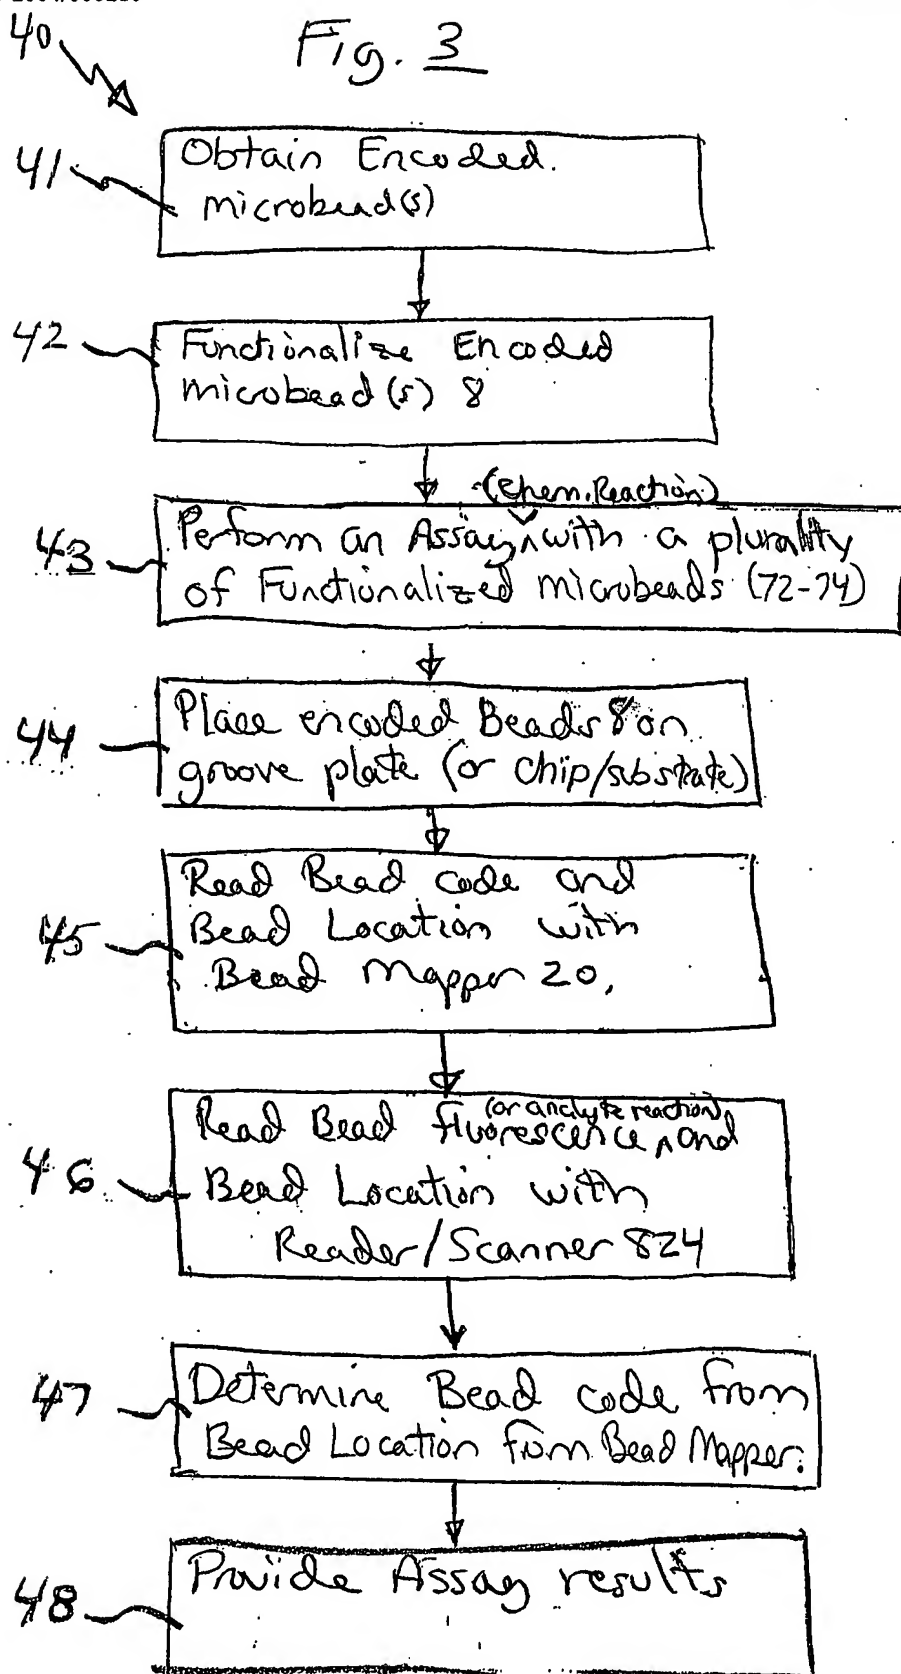 40
Fig. 3
41
Obtain Encoded.
microbead(s)
42
Functionalize Encoded
microbead(s) 8
(Chem. Reaction)
43
Perform an Assay ^ with a plurality
of Functionalized microbeads (72-74)
44
Place encoded Beads 8 on
groove plate (or chip/substrate)
45
Read Bead code and
Bead Location with
Bead Mapper 20,
46
(or analyte reaction)
Read Bead fluorescence ^ and
Bead Location with
Reader/Scanner 824
47
Determine Bead code from
Bead Location from Bead Mapper.
48
Provide Assay results